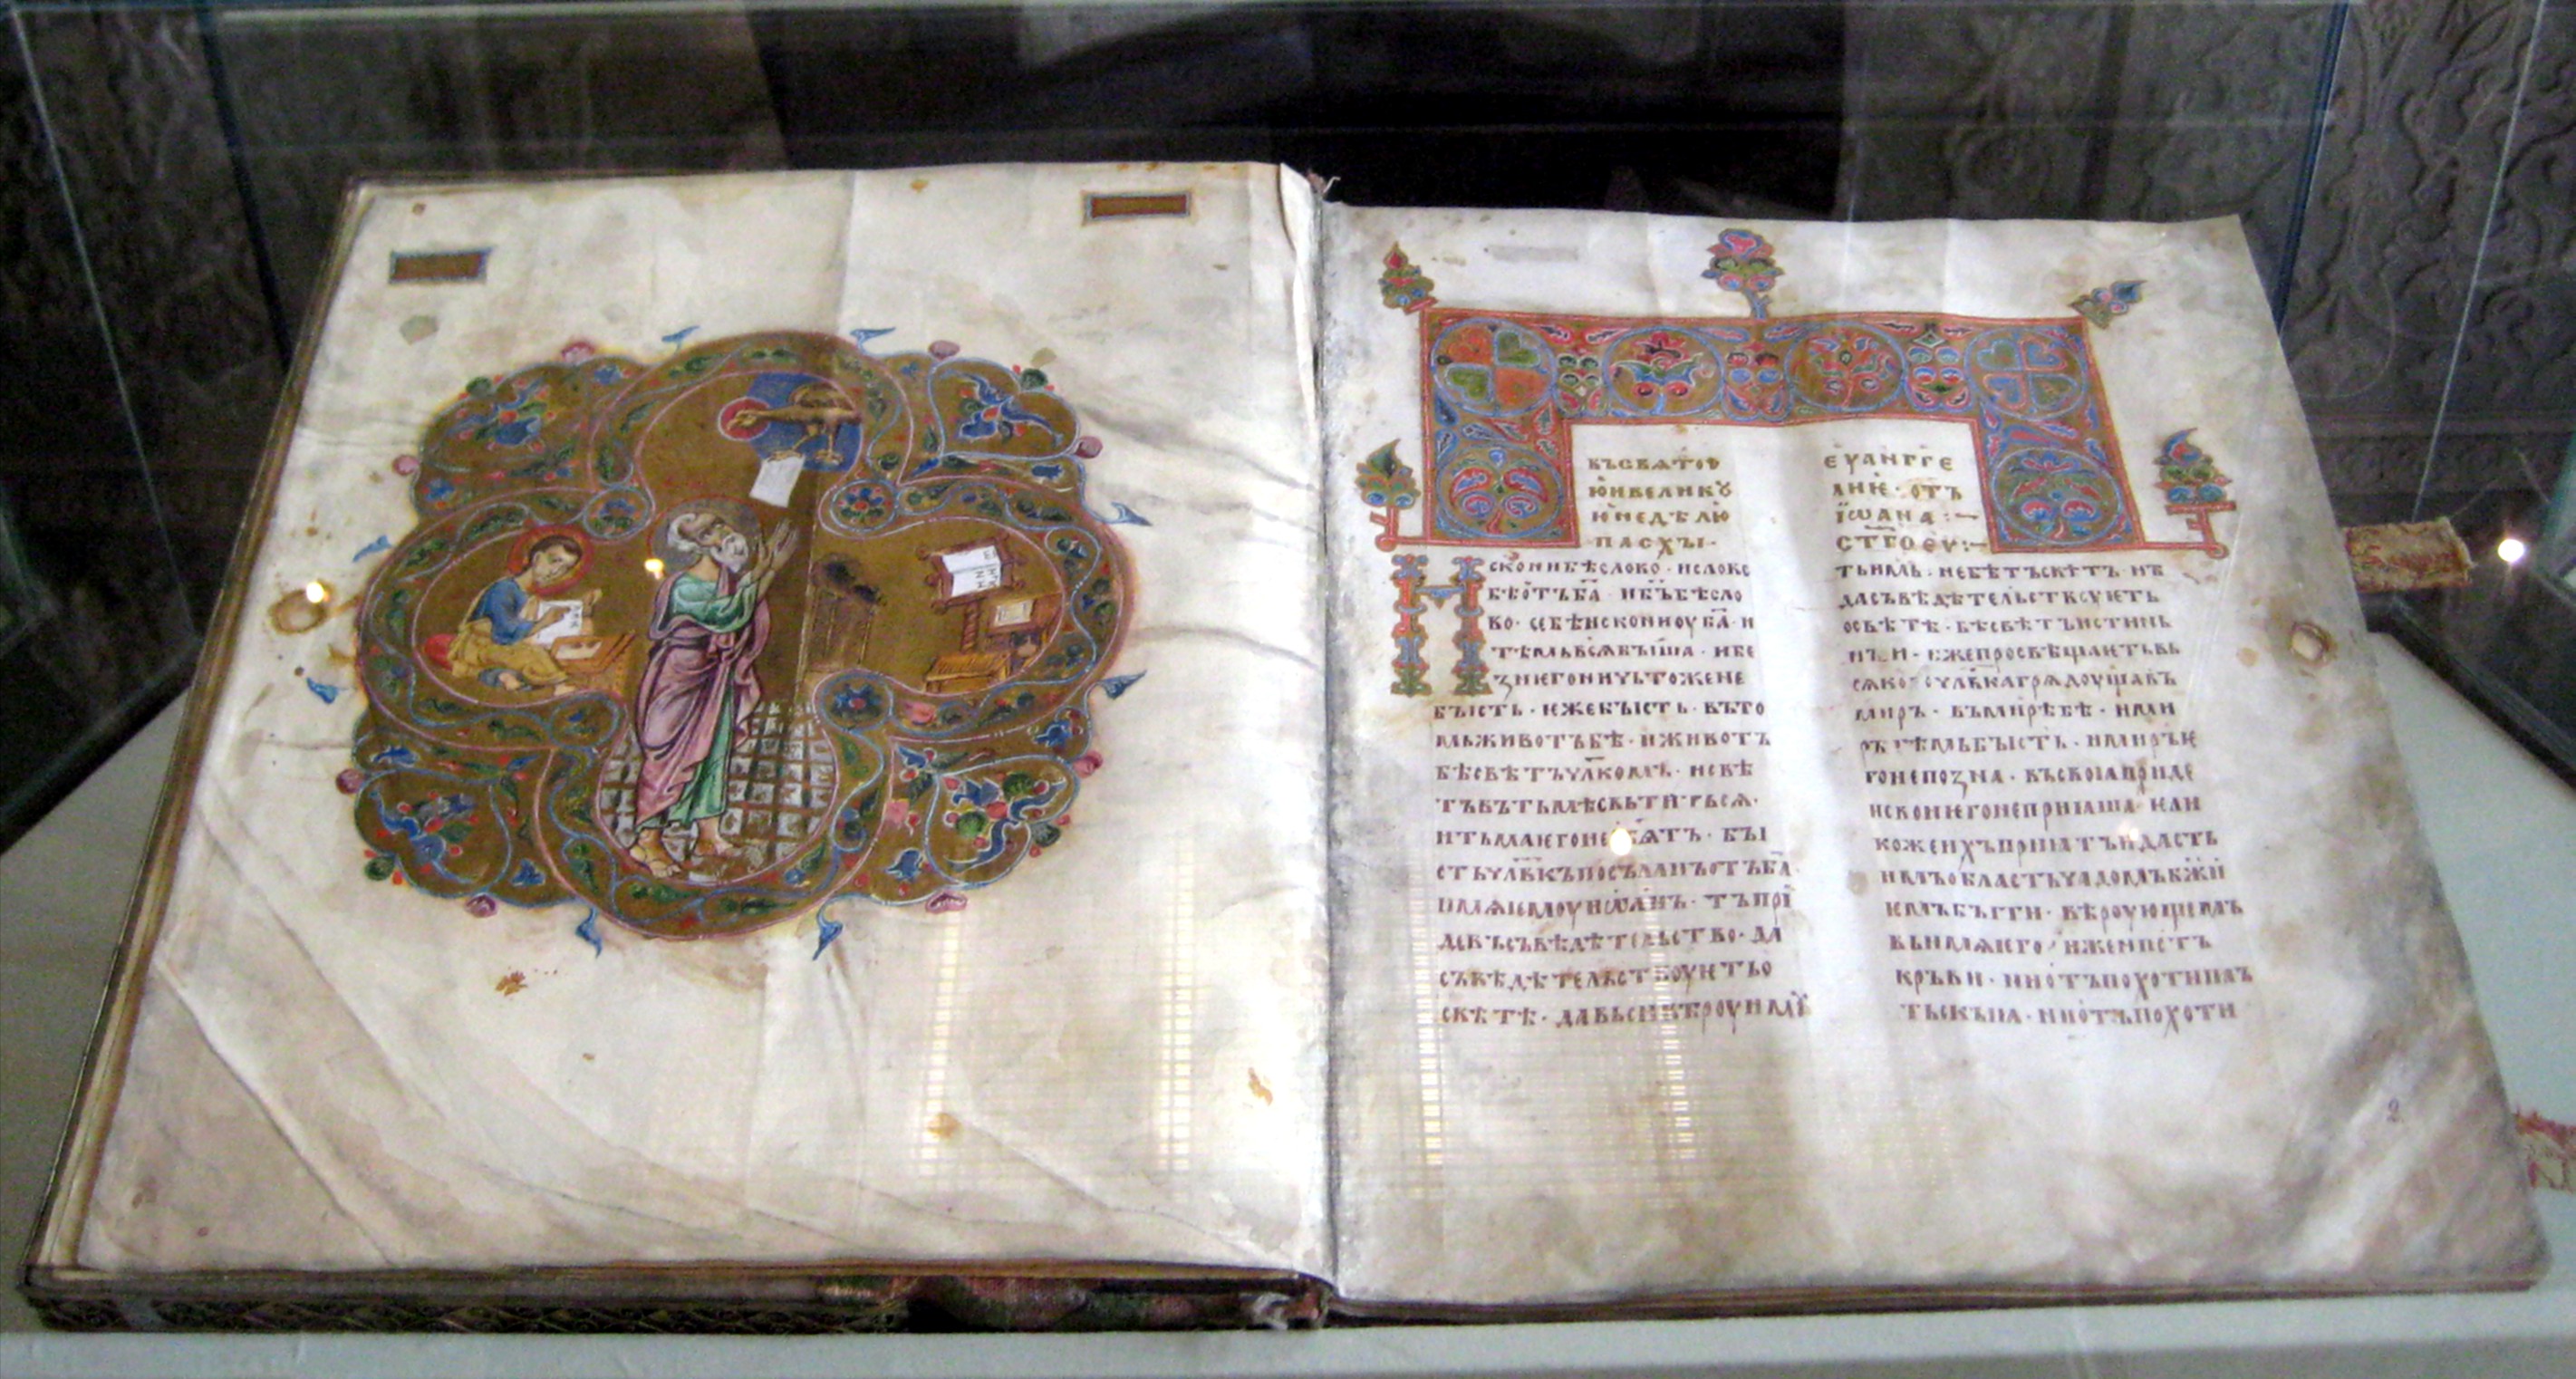 въсвѧтоу
ю҄ивеликꙋ
ю҄недѣлю
пасхы·
искони бѣслово · ислово
бѣо҄тъба҃ · иб҃ъбѣсло
во · себѣискониоуба҃ · и
тѣмьвсѧбыша · ибе
знѥгоничьтожене
бысть · ѥжебысть · въто
мьживотъбѣ · иживотъ
бѣсвѣтъчл҃комъ · исвѣ
тъвътьмѣсвьтитьсѧ ·
итьмаѥгоне ѧтъ · бы
стьчлв҃къпосъланъотъба҃ ·
имѧѥмоуиѡанъ · тъпрї
девъсъвѣдѣтельство · да
съвѣдѣтельствоуѥтьо
свѣтѣ · давьсивѣроуимꙋ
еуангге
лиѥ · отъ
їѡана :~
ст҃гоеу :~
тьимь · небѣтъсвѣтъ · нъ
дасъвѣдѣтельствоуѥть
освѣтѣ · бѣсвѣтъистинь
нъи · ижепросвѣщаѥтьвь
сѧкогочлв҃кагрѧдоущавъ
миръ · вьмирѣбѣ · ими
рътѣмьбысть · имиръѥ
гонепозна · въсвоꙗприде
исвоиѥгонеприꙗша · ѥли
кожеихъприꙗтъидасть
имъобластьчадомъбж҃и
ѥмъбыти · вѣроующемъ
вьимѧѥго · ижениотъ
кръви · ниотъпохотиплъ
тьскыꙗ · ниотъпохоти
2